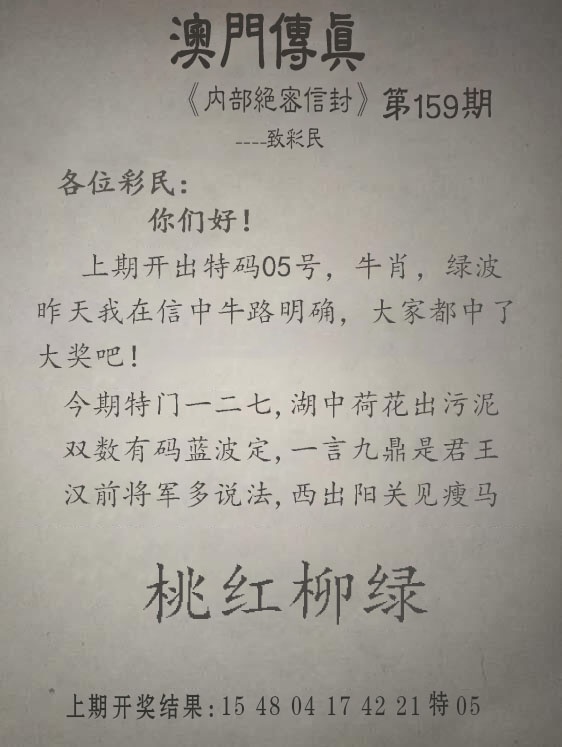 澳門傳眞
《内部絕密信封》第159期
----致彩民
各位彩民：
你们好！
上期开出特码05号，牛肖，绿波
昨天我在信中牛路明确，大家都中了
大奖吧！
今期特门一二七,湖中荷花出污泥
双数有码蓝波定,一言九鼎是君王
汉前将军多说法,西出阳关见瘦马
桃红柳绿
上期开奖结果：15 48 04 17 42 21 特 05